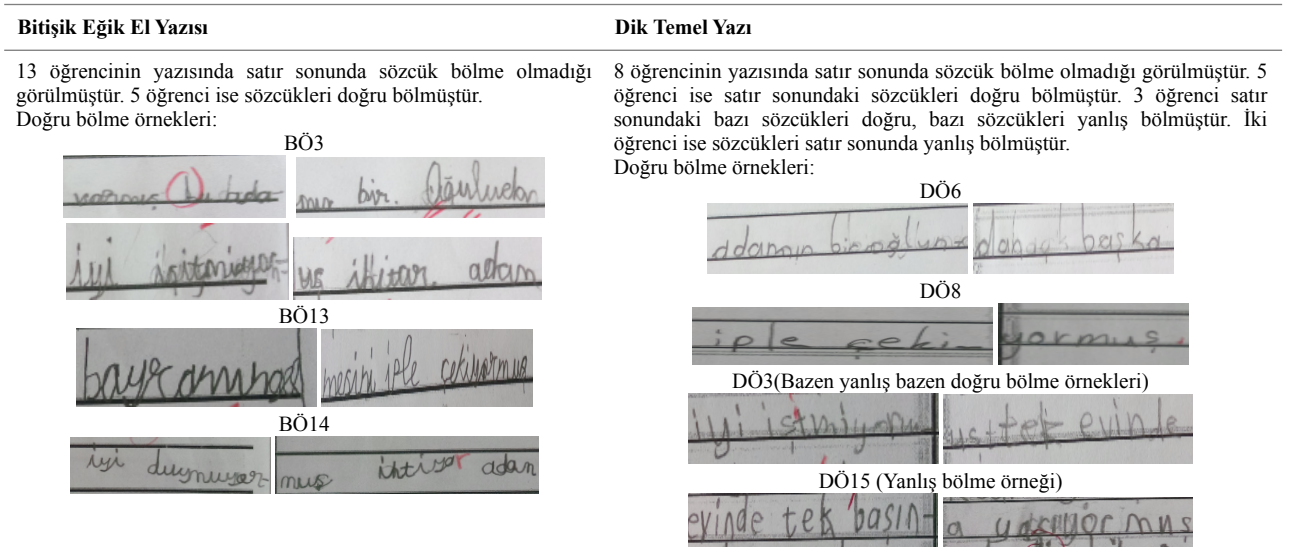 Bitişik Eğik El Yazısı
13 öğrencinin yazısında satır sonunda sözcük bölme olmadığı
görülmüştür. 5 öğrenci ise sözcükleri doğru bölmüştür.
Doğru bölme örnekleri:
BÖ3
bu bada
mış bir. Oğulucton
iyi işitmiyor-
uş ihitar. adam
BÖ13
bayramıngel
mesini iple çekiyormuş
BÖ14
iyi duymuyor-
muş ihtiyar adam
Dik Temel Yazı
8 öğrencinin yazısında satır sonunda sözcük bölme olmadığı görülmüştür. 5
öğrenci ise satır sonundaki sözcükleri doğru bölmüştür. 3 öğrenci satır
sonundaki bazı sözcükleri doğru, bazı sözcükleri yanlış bölmüştür. İki
öğrenci ise sözcükleri satır sonunda yanlış bölmüştür.
Doğru bölme örnekleri:
DÖ6
adamın
başka
DÖ8
iple çeki-
yormuş.
DÖ3(Bazen yanlış bazen doğru bölme örnekleri)
iyi istmiyorm
uş tek evinde
DÖ15 (Yanlış bölme örneği)
evinde tek başın-
a